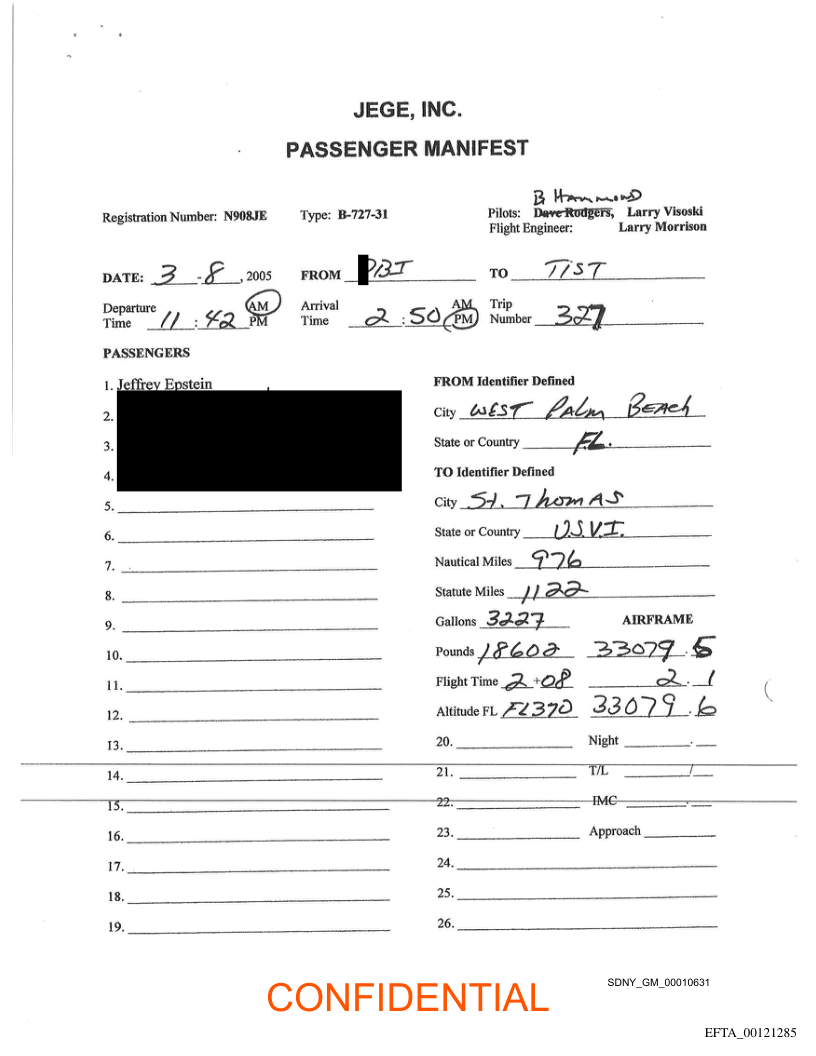 JEGE, INC.
PASSENGER MANIFEST
B Hammond
Registration Number: N908JE Type: B-727-31 Pilots: Dave Rodgers, Larry Visoski
Flight Engineer: Larry Morrison
DATE: 3 - 8, 2005 FROM PBI TO TIST
Departure Time 11 : 42 AM PM Arrival Time 2 : 50 AM PM Trip Number 327
PASSENGERS
1. Jeffrey Epstein
2.
3.
4.
5.
6.
7.
8.
9.
10.
11.
12.
13.
14.
15.
16.
17.
18.
19.
FROM Identifier Defined
City WEST PALM BEACH
State or Country FL.
TO Identifier Defined
City St. Thomas
State or Country U.S.V.I.
Nautical Miles 976
Statute Miles 1122
Gallons 3227 AIRFRAME
Pounds 18602 33079.5
Flight Time 2+08 2.1
Altitude FL FL370 33079.6
20. Night
21. T/L /
22. IMC
23. Approach
24.
25.
26.
CONFIDENTIAL
SDNY_GM_00010631
EFTA_00121285